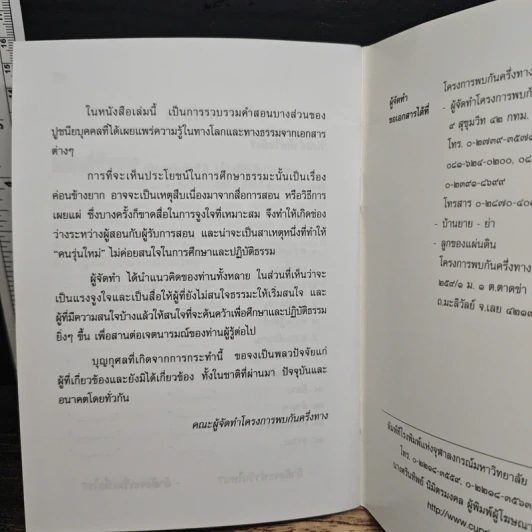 ในหนังสือเล่มนี้ เป็นการรวบรวมคำสอนบางส่วนของ
ปูชนียบุคคลที่ได้เผยแพร่ความรู้ในทางโลกและทางธรรมจากเอกสาร
ต่างๆ
การที่จะเห็นประโยชน์ในการศึกษาธรรมะนั้นเป็นเรื่อง
ค่อนข้างยาก อาจจะเป็นเหตุสืบเนื่องมาจากสื่อการสอน หรือวิธีการ
เผยแผ่ ซึ่งบางครั้งก็ขาดสื่อในการจูงใจที่เหมาะสม จึงทำให้เกิดช่อง
ว่างระหว่างผู้สอนกับผู้รับการสอน และน่าจะเป็นสาเหตุหนึ่งที่ทำให้
"คนรุ่นใหม่" ไม่ค่อยสนใจในการศึกษาและปฏิบัติธรรม
ผู้จัดทำ ได้นำแนวคิดของท่านทั้งหลาย ในส่วนที่เห็นว่าจะ
เป็นแรงจูงใจและเป็นสื่อให้ผู้ที่ยังไม่สนใจธรรมะให้เริ่มสนใจ และ
ผู้ที่มีความสนใจบ้างแล้วให้สนใจที่จะค้นคว้าเพื่อศึกษาและปฏิบัติธรรม
ยิ่งๆ ขึ้น เพื่อสานต่อเจตนารมณ์ของท่านผู้รู้ต่อไป
บุญกุศลที่เกิดจากการกระทำนี้ ขอจงเป็นพลวปัจจัยแก่
ผู้ที่เกี่ยวข้องและยังมิได้เกี่ยวข้อง ทั้งในชาติที่ผ่านมา ปัจจุบันและ
อนาคตโดยทั่วกัน
คณะผู้จัดทำโครงการพบกันครึ่งทาง
ผู้จัดทำ โครงการพบกันครึ่งทาง
ขอเอกสารได้ที่ - ผู้จัดทำโครงการพบกัน
๙ สุขุมวิท ๔๒ กทม.
โทร. ๐-๒๗๓๙-๓๕๗๑
๐๘๑-๖๒๔-๐๒๐๐, ๐๘
๐-๒๓๙๑-๔๖๙๙
โทรสาร ๐-๒๔๗๐-๔๐
- บ้านยาย - ย่า
- ลูกของแผ่นดิน
โครงการพบกันครึ่งทาง
๒๕๙/๑ ม. ๑ ต.ตาดข่า
ถ.มะลิวัลย์ จ.เลย ๔๒๑
พิมพ์ที่โรงพิมพ์แห่งจุฬาลงกรณ์มหาวิทยาลัย
โทร. ๐-๒๒๑๘-๓๕๕๙, ๐-๒๒๑๘-๓๕๖๓
นางศรินทิพย์ นิมิตรมงคล ผู้พิมพ์ผู้โฆษณา